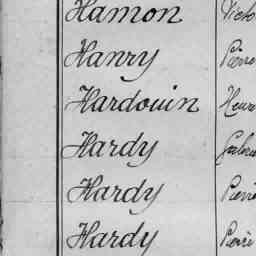 Hamon Victo
Hanry Pierre
Hardouin Henri
Hardy
Hardy Pierre
Hardy Pierre